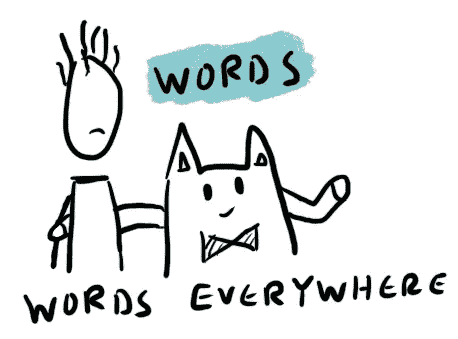 WORDS
WORDS EVERYWHERE